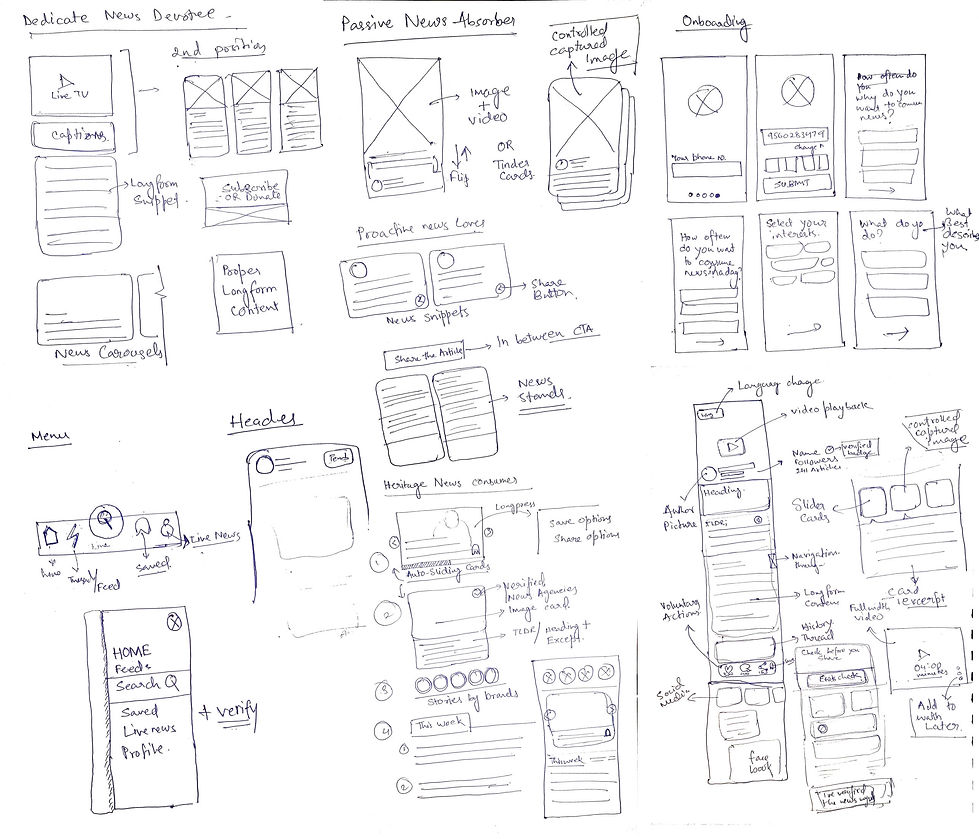 Dedicate News Devotee
2nd position
Live TV
Captions
Longform
Snippet
Subscribe
OR Donate
Proper
Longform
Content
News Carousels
Passive News Absorber
controlled
captured
Image
Image
+
video
OR
Tinder
Cards
Flip
Proactive news Lover
Share
Button
News Snippets
Share the Article
In between CTA
News
Stands
Onboarding
Your phone no.
9560283479
change
SUBMIT
How often do
you
why do you
want to
news?
How often
do you want
to consume
news in a day?
Select your
interests
What do yo
do?
What
Best
describe
you
Menu
Live News
Saved
Feed
HOME
Feeds
Search
Saved
Live news
Profile
+ verify
Header
Heritage News consumes
Longpress
Save options
Share options
1
Auto-Sliding Cards
2
Verified
News Agencies
Image card
TLDR/ Heading +
Excerpt
3
Stories by brands
4
This week
1
2
This week
Language change
video playback
Name
verified
badge
Followers
Articles
Author
Picture
Heading
TLDR;
Navigation
Longform
Content
Voluntary
Actions
History
Thread
Social
Media
Slider
Cards
controlled
captured
image
card
excerpt
Full width
video
04:00
minutes
Add to
watch
Later
Check before you
Share
I've verified
the news